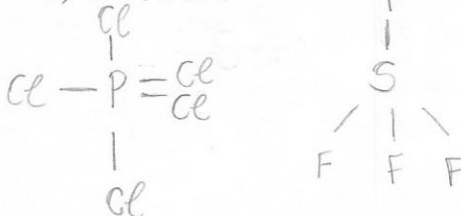 Cl
Cl — P = Cl
Cl
Cl
S
F F F